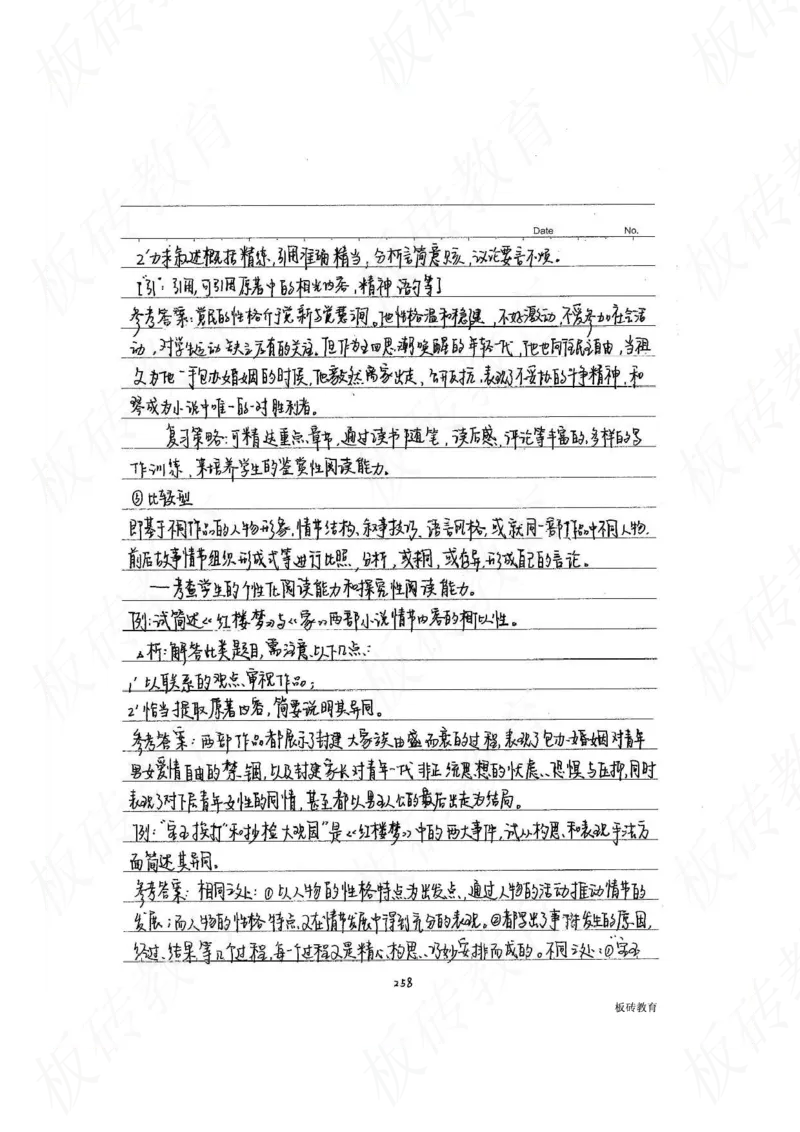 Date No.
2' 力求叙述概括精练,引用准确精当,分析言简意赅,议论要言不烦。
["引":引用,可引用原著中的相关内容,精神语句等]
参考答案:觉民的性格介于觉新与觉慧之间。他性格温和稳健,不好激动,不爱参加社会活
动,对学生运动缺乏应有的关注。但作为五四思潮唤醒的年轻一代,他也向往民主自由,当祖
父为他一手包办婚姻的时候,他毅然离家出走,公开反抗,表现了不妥协的斗争精神,和
琴成为小说中唯一的一对胜利者。
复习策略:可精选重点章节,通过读书随笔,读后感,评论等丰富的,多样的写
作训练,来培养学生的鉴赏性阅读能力。
⑤比较型
即基于不同作品的人物形象,情节结构、叙事技巧、语言风格,或就同一部作品中不同人物,
前后故事情节组织形成式等进行比照,分析,或求同,或存异,形成自己的言论。
——考查学生的个性化阅读能力和探究性阅读能力。
例:试简述《红楼梦》与《家》两部小说情节内容的相似性。
△析:解答此类题目,需注意以下几点:
1' 以联系的观点、审视作品;
2' 恰当提取原著内容,简要说明其异同。
参考答案:两部作品都展示了封建大家族由盛而衰的过程,表现了包办婚姻对青年
男女爱情自由的禁锢,以及封建家长对青年一代非正统思想的忧虑、恐惧与压抑,同时
表现了对下层青年女性的同情,甚至都以男主人公的最后出走为结局。
例:"宝玉挨打"和抄检大观园"是《红楼梦》中的两大事件,试从构思和表现手法方
面简述其异同。
参考答案:相同之处:①以人物的性格特点为出发点,通过人物的活动推动情节的
发展;而人物的性格特点又在情节发展中得到充分的表现。②都写出了事件发生的原因,
经过、结果等几个过程,每一个过程又是精心构思、巧妙安排而成的。不同之处:①宝玉
258
板砖教育